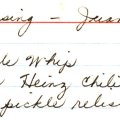 sing - Jean
le Whip
Heinz chili
pickle relis